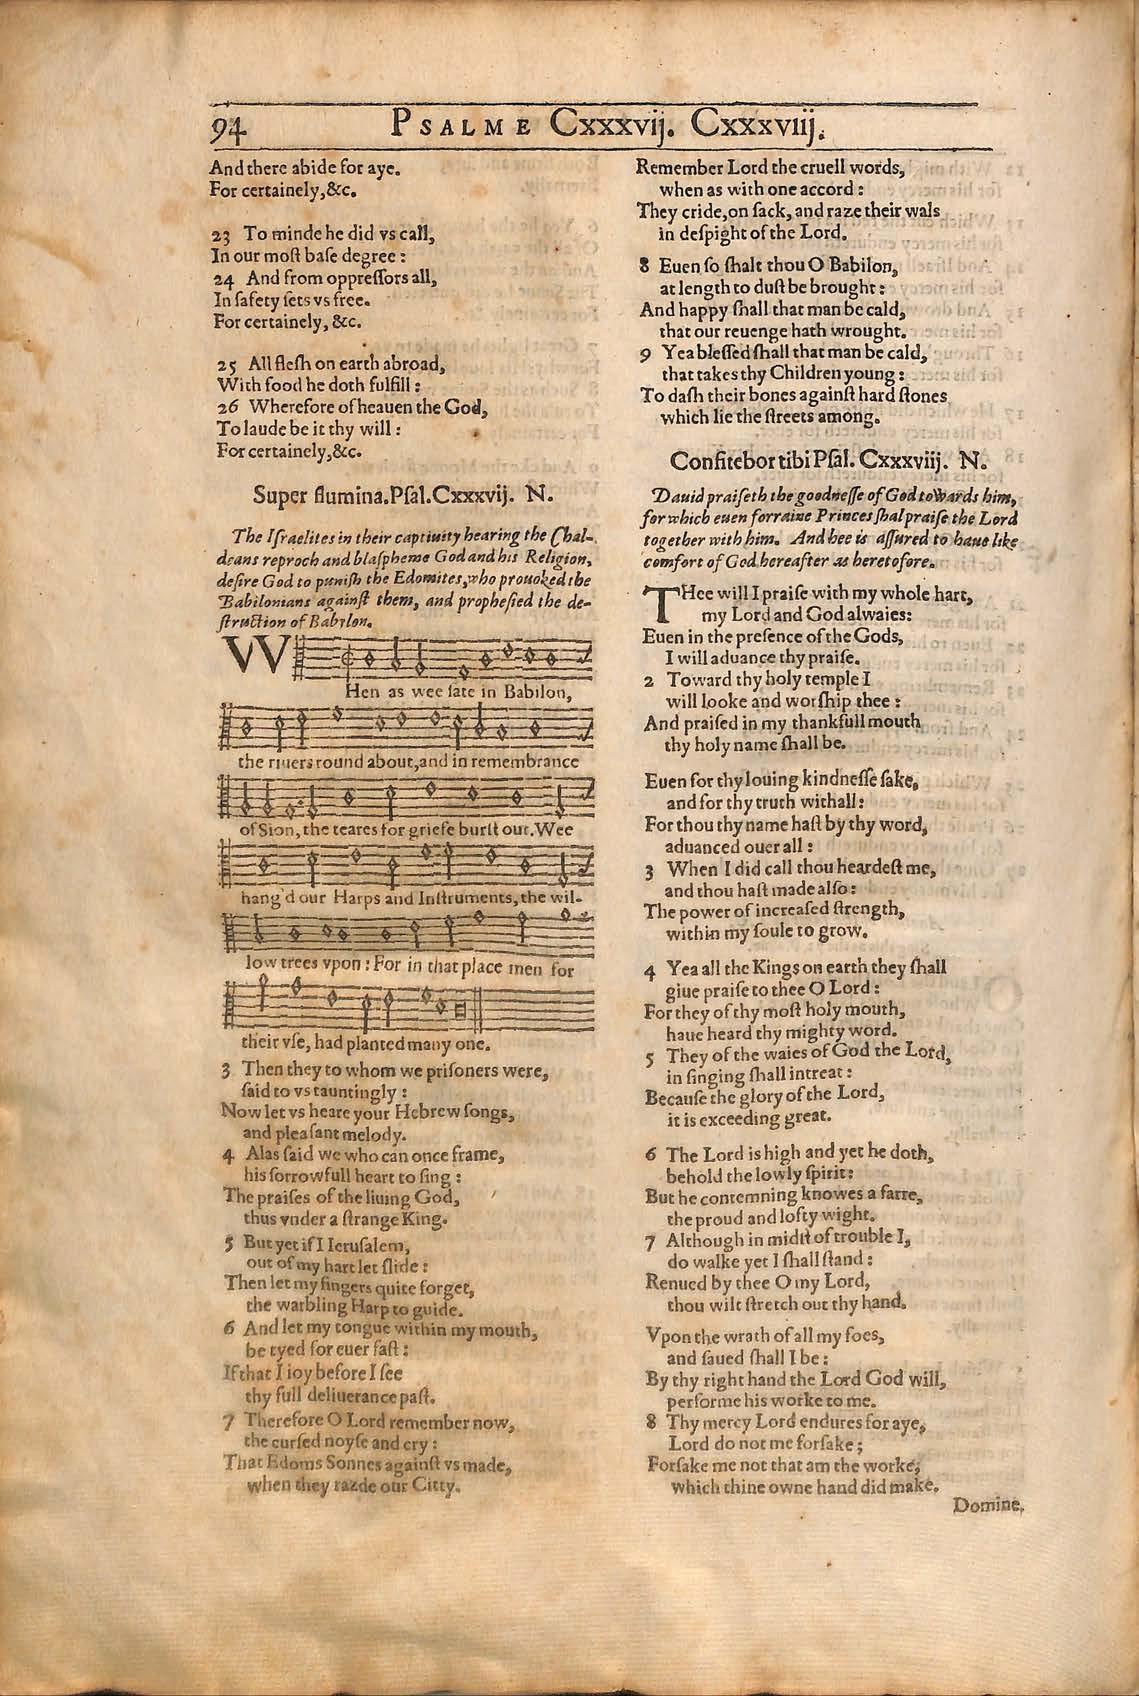 94 PSALME Cxxxvij. Cxxxviij.
And there abide for aye.
For certainely, &c.
23 To minde he did vs call,
In our most base degree :
24 And from oppressors all,
In safety sets vs free.
For certainely, &c.
25 All flesh on earth abroad,
With food he doth fulfill :
26 Wherefore of heauen the God,
To laude be it thy will :
For certainely, &c.
Super flumina. Psal. Cxxxvij. N.
The Israelites in their captiuity hearing the Chal-
deans reproch and blaspheme God and his Religion,
desire God to punish the Edomites, who prouoked the
Babilonians against them, and prophesied the de-
struction of Babylon.
WHen as wee sate in Babilon,
the riuers round about, and in remembrance
of Sion, the teares for griefe burst out. Wee
hang'd our Harps and Instruments, the wil-
low trees vpon : For in that place men for
their vse, had planted many one.
3 Then they to whom we prisoners were,
said to vs tauntingly :
Now let vs heare your Hebrew songs,
and pleasant melody.
4 Alas said we who can once frame,
his sorrowfull heart to sing :
The praises of the liuing God,
thus vnder a strange King.
5 But yet if I Ierusalem,
out of my hart let slide :
Then let my fingers quite forget,
the warbling Harp to guide.
6 And let my tongue within my mouth,
be tyed for euer fast :
If that I ioy before I see
thy full deliuerance past.
7 Therefore O Lord remember now,
the cursed noyse and cry :
That Edoms Sonnes against vs made,
when they razde our Citty.
Remember Lord the cruell words,
when as with one accord :
They cride, on sack, and raze their wals
in despight of the Lord.
8 Euen so shalt thou O Babilon,
at length to dust be brought :
And happy shall that man be cald,
that our reuenge hath wrought.
9 Yea blessed shall that man be cald,
that takes thy Children young :
To dash their bones against hard stones
which lie the streets among.
Confitebor tibi Psal. Cxxxviij. N.
Dauid praiseth the goodnesse of God towards him,
for which euen forraine Princes shal praise the Lord
together with him. And hee is assured to haue like
comfort of God hereafter as heretofore.
THee will I praise with my whole hart,
my Lord and God alwaies:
Euen in the presence of the Gods,
I will aduance thy praise.
2 Toward thy holy temple I
will looke and worship thee :
And praised in my thankfull mouth
thy holy name shall be.
Euen for thy louing kindnesse sake,
and for thy truth withall :
For thou thy name hast by thy word,
aduanced ouer all :
3 When I did call thou heardest me,
and thou hast made also :
The power of increased strength,
within my soule to grow.
4 Yea all the Kings on earth they shall
giue praise to thee O Lord :
For they of thy most holy mouth,
haue heard thy mighty word.
5 They of the waies of God the Lord,
in singing shall intreat :
Because the glory of the Lord,
it is exceeding great.
6 The Lord is high and yet he doth,
behold the lowly spirit:
But he contemning knowes a farre,
the proud and lofty wight.
7 Although in midst of trouble I,
do walke yet I shall stand :
Renued by thee O my Lord,
thou wilt stretch out thy hand.
Vpon the wrath of all my foes,
and saued shall I be :
By thy right hand the Lord God will,
performe his worke to me.
8 Thy mercy Lord endures for aye,
Lord do not me forsake ;
Forsake me not that am the worke,
which thine owne hand did make.
Domine,